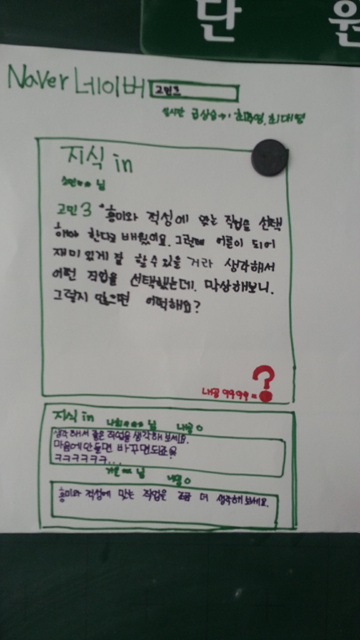 단 원
Naver 네이버 고민3
실시간 급상승→1
지식 in
님
고민3 "흥미와 적성에 맞는 직업을 선택
해야 한다고 배웠어요. 그런데 어른이 되어
재미있게 잘 할 수 있을 거라 생각해서
어떤 직업을 선택했는데, 막상해보니,
그렇지 않으면 어떡해요?
?
내공 9999=
지식in 님 내공 0
생각해서 좋은 직업을 생각해 보세요.
마음에 안들면 바꾸면되죠
ㅋㅋㅋㅋㅋㅋ...
님 내공 0
흥미와 적성에 맞는 직업은 조금 더 생각해보세요.